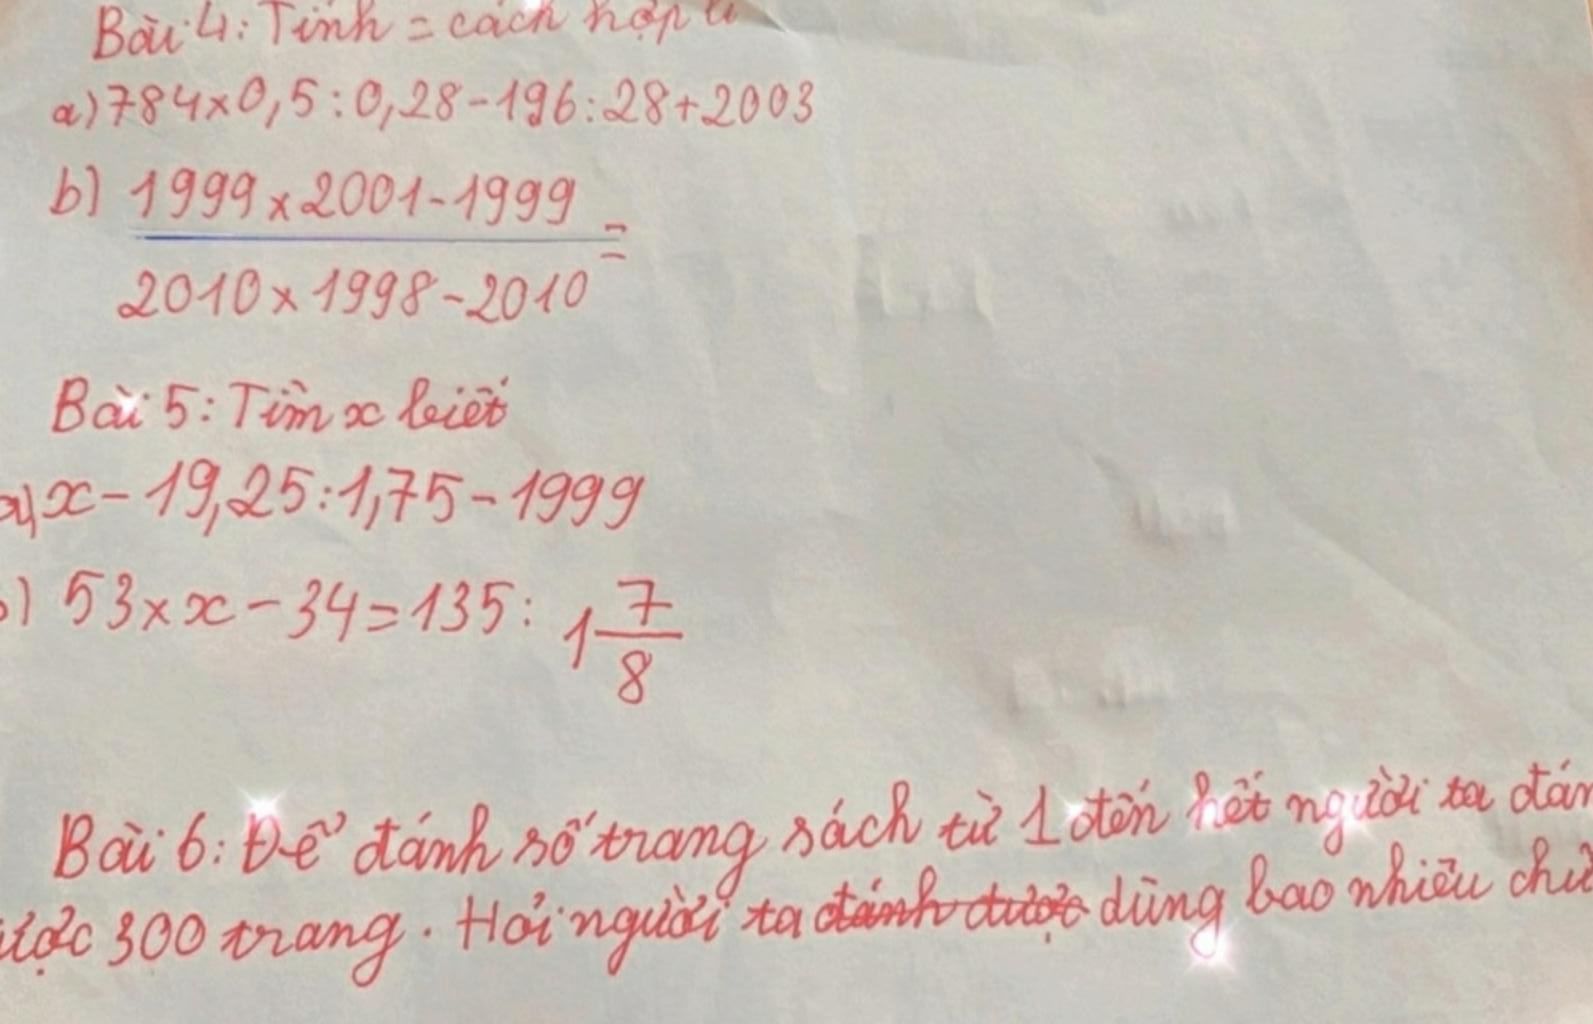 Bài 4: Tính = cách hợp lí
a) 784 × 0,5 : 0,28 - 196 : 28 + 2003
b) 1999 × 2001 - 1999
=
2010 × 1998 - 2010
Bài 5: Tìm x biết
a) x - 19,25 : 1,75 - 1999
b) 53 × x - 34 = 135 : 1 7/8
Bài 6: Để đánh số trang sách từ 1 đến hết người ta đán
ược 300 trang. Hỏi người ta đánh được dùng bao nhiêu chữ